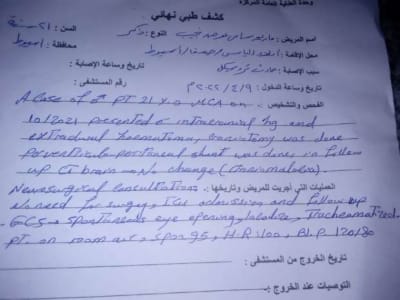 وحدة العناية العامة المركزة
كشف طبي نهائي
السن : ٢١ سنة
اسم المريض : النوع : ذكر
محل الإقامة : محافظة : أسيوط
سبب الإصابة : حادث تاريخ وساعة الإصابة :
تاريخ وساعة الدخول : ٢٠٢٢/٤/٩ رقم المستشفى :
الفحص والتشخيص :
A Case of ♂ PT 21 y.o MCA on
10/2021 presented ē intracranial hg and
extradural haematoma, craniotomy was done
peritoneal shunt was done, in follow
up CT brain → no change
العمليات التي أجريت للمريض وتاريخها :
Neurosurgical consultation:
No need for surgery, ICU admission and follow up
GCS → spontaneous eye opening, localize, Tracheostomized.
pt. on room air, spo2 95, H.R: 100, B.P 120/80
تاريخ الخروج من المستشفى :
التوصيات عند الخروج :